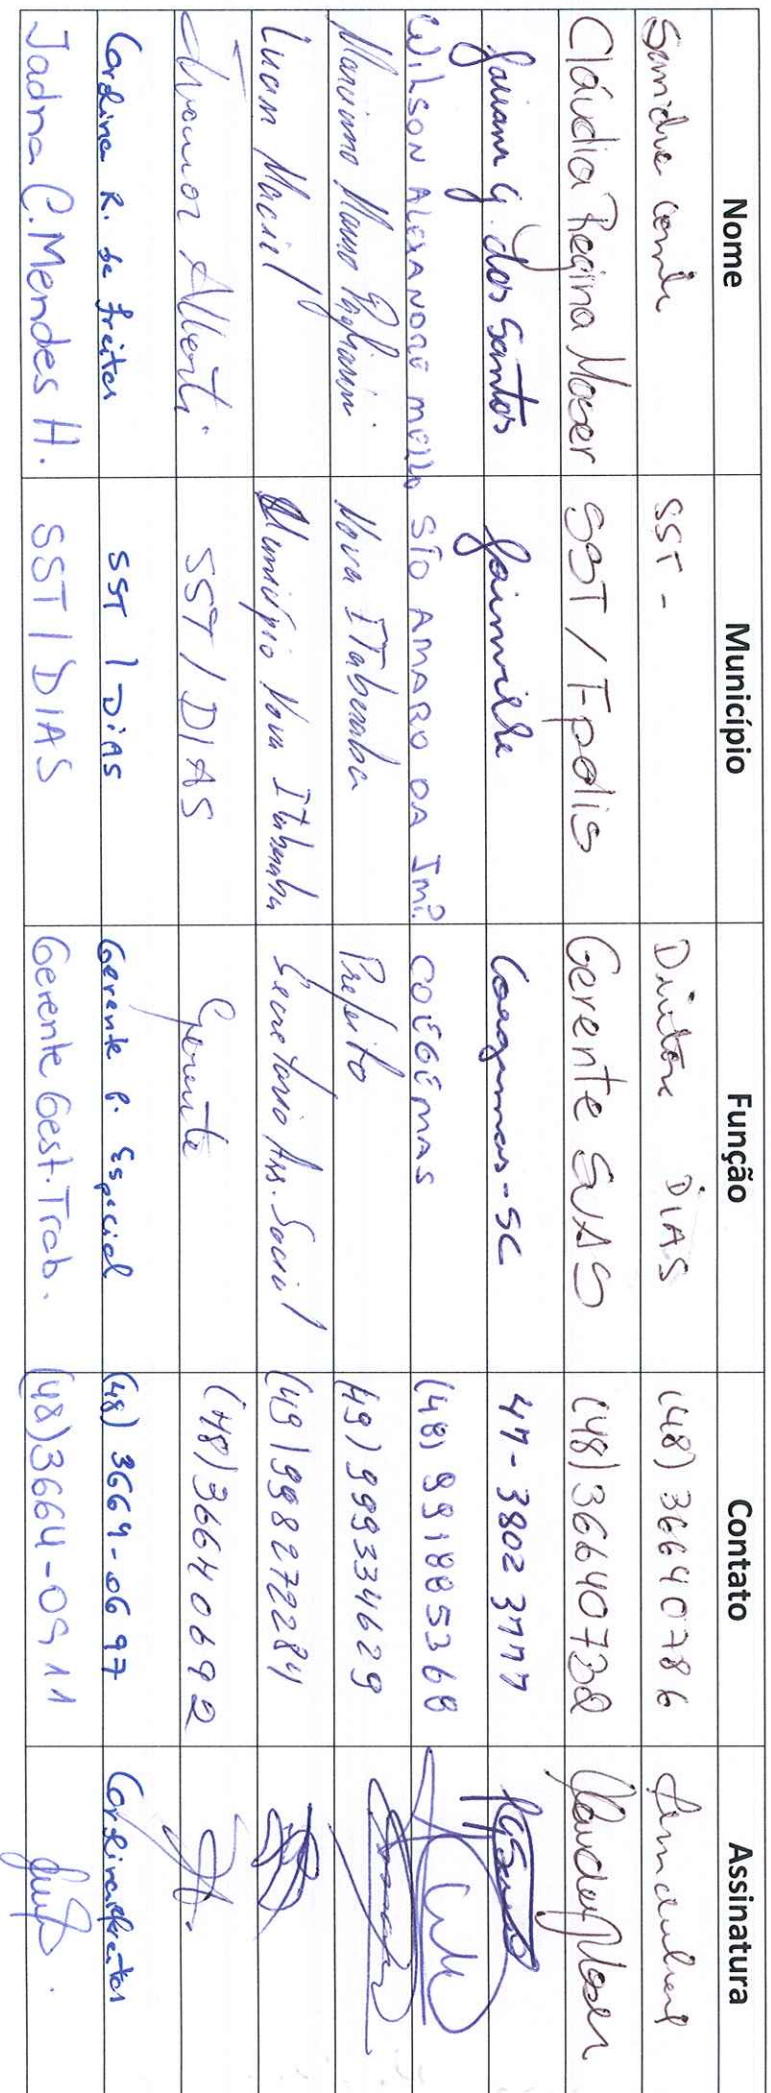 Nome Município Função Contato Assinatura
SST - DIAS (48) 36640786
Cláudia Regina Moser SST / Fpolis Gerente SUAS (48) 36640732
G. dos Santos Joinville Coegemas-SC 47-3802 3777
WILSON ALEXANDRE MELLO STO AMARO DA IMP. COEGEMAS (48) 991885368
Nova Itaberaba Prefeito (49) 999334629
Luan Maciel Município Nova Itaberaba Secretario Ass. Social (49) 998272284
Alberti SST / DIAS Gerente (48) 36640692
R. de Freitas SST / DIAS Gerente P. Especial (48) 3664-0697
Jadna C. Mendes H. SST / DIAS Gerente Gest. Trab. (48) 3664-0911